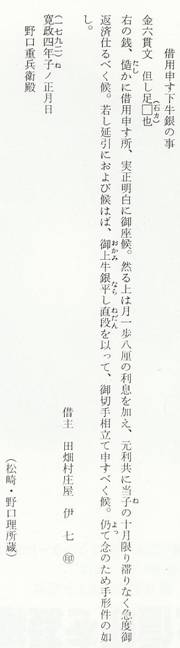 借用申す下牛銀の事
(石カ)
金六貫文 但し足□也
たし
右の銭、慥かに借用申す所、実正明白に御座候。然る上は月一歩八厘の利息を加え、元利共に当子の十月限り滞りなく急度御
ね
返済仕るべく候。若し延引におよび候はば、御上牛銀平し直段を以って、御切手相立て申すべく候。仍て念のため手形件の如
おかみ なら ねだん よっ
し。
借主 田畑村庄屋 伊七 ㊞
(一七九二) ね
寛政四年子ノ正月日
野口重兵衛殿
(松崎・野口理所蔵)